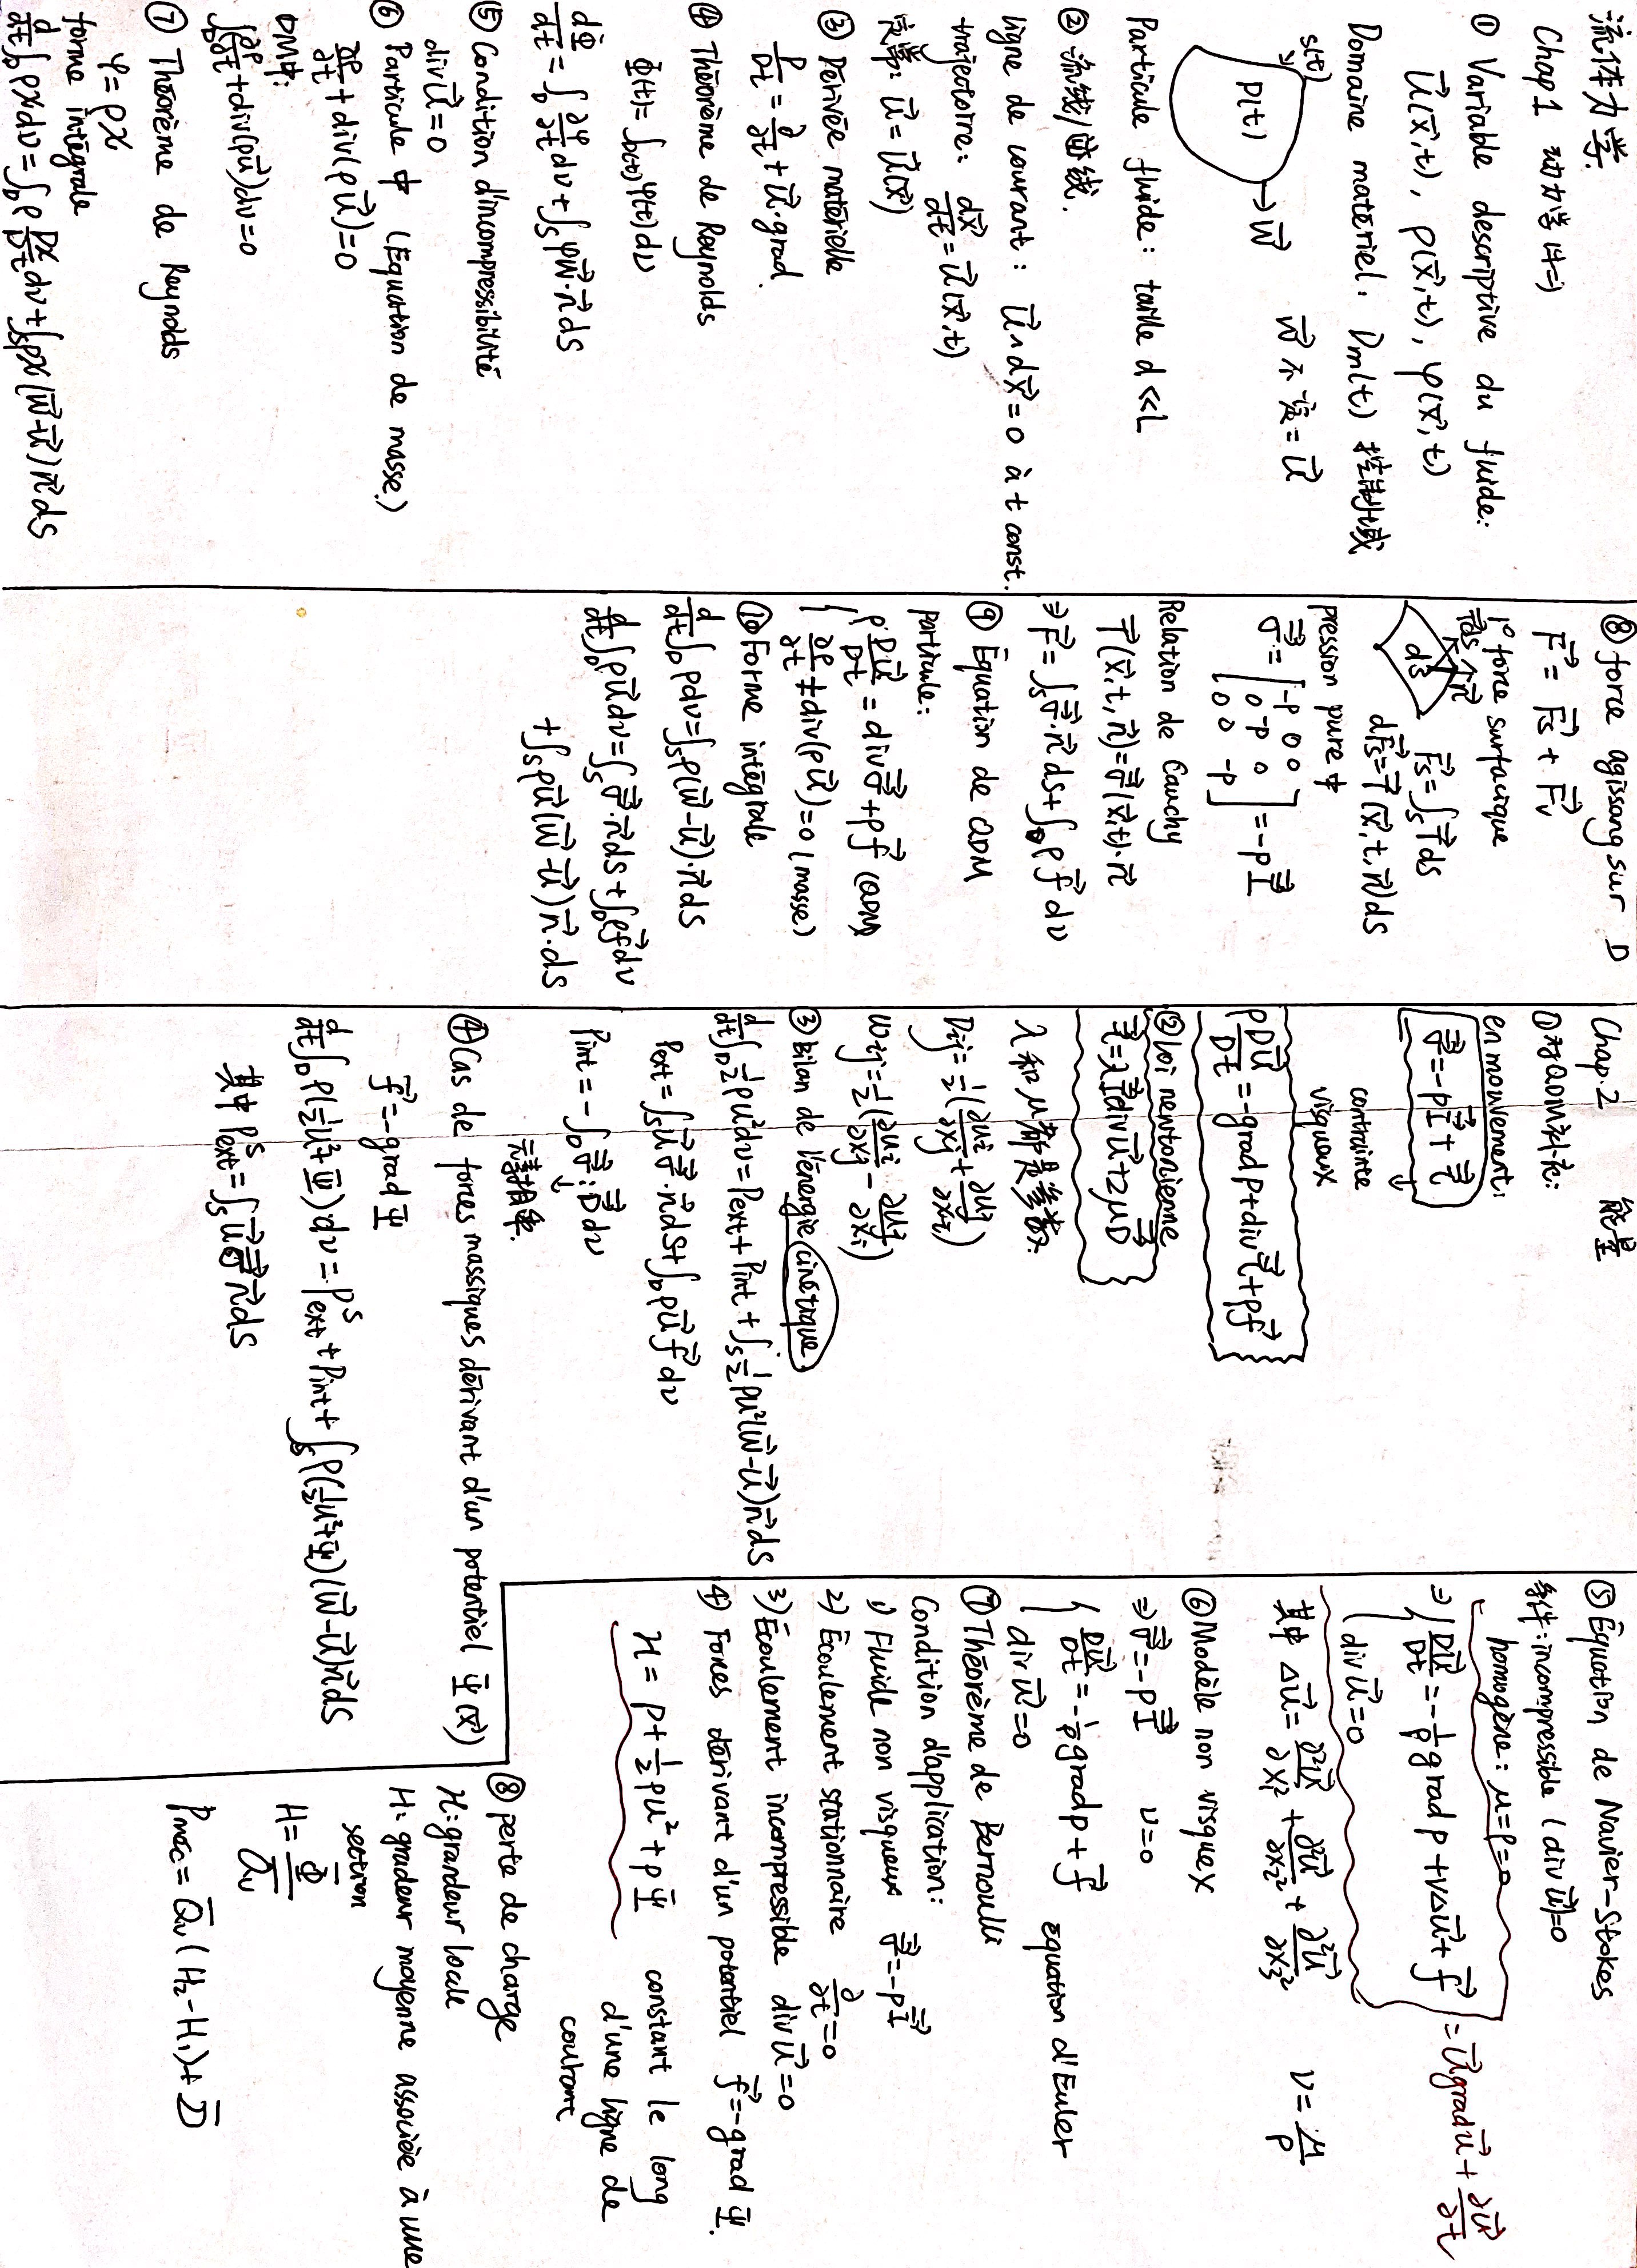 流体力学.
Chap 1 动力学(牛二)
① Variable descriptive du fluide:
u⃗(x⃗,t), ρ(x⃗,t), φ(x⃗,t)
Domaine matériel: Dm(t) 控制域
s(t)
D(t) → w⃗
w⃗ 不一定= u⃗
Particule fluide: taille d ≪ L
② 流线/迹线.
ligne de courant: u⃗∧dx⃗=0 à t const.
trajectoire: dx⃗/dt = u⃗(x⃗,t)
定常: u⃗ = u⃗(x⃗)
③ Dérivée matérielle
D/Dt = ∂/∂t + u⃗·grad.
④ Théorème de Reynolds
Φ(t)= ∫D(t) φ(t) dv
dΦ/dt = ∫D ∂φ/∂t dv + ∫S φw⃗·n⃗ dS
⑤ Condition d'incompressibilité
div u⃗ = 0
⑥ Particule 中 (Equation de masse.)
∂ρ/∂t + div(ρu⃗)=0
DM中:
∫D ∂ρ/∂t + div(ρu⃗)dv=0
⑦ Théorème de Reynolds
φ = ρχ
forme intégrale
d/dt ∫D ρχ dv = ∫D ρ Dχ/Dt dv + ∫S ρχ (w⃗-u⃗) n⃗ dS
⑧ force agissang sur D
F⃗ = F⃗s + F⃗v
1° force surfacique
T⃗ds n⃗
dS
F⃗s = ∫S T⃗ ds
dF⃗s = T⃗(x⃗,t,n⃗) dS
pression pure 中
σ = [-p 0 0
0 -p 0
0 0 -p] = -p I
Relation de Cauchy
T⃗(x⃗,t,n⃗) = σ(x⃗,t)·n⃗
⇒ F⃗ = ∫S σ·n⃗ ds + ∫D ρ f⃗ dv
⑨ Équation de QDM
particule:
ρ Du⃗/Dt = div σ + ρf⃗ (QDM)
∂ρ/∂t + div(ρu⃗)=0 (masse)
⑩ Forme intégrale
d/dt ∫D ρdv = ∫S ρ(w⃗-u⃗)·n⃗ dS
d/dt ∫D ρu⃗ dv = ∫S σ·n⃗ ds + ∫D ρf⃗ dv
+ ∫S ρu⃗(w⃗-u⃗) n⃗·dS
Chap.2 能量
① 对QDM补充:
en mouvement:
σ = -p I + τ
↓
contrainte
visqueux
ρ Du⃗/Dt = -grad p + div τ + ρf⃗
② loi newtonienne
τ = λ I div u⃗ + 2μ D
λ 和 μ 都是参数.
Dij = 1/2 (∂ui/∂xj + ∂uj/∂xi)
ωij = 1/2 (∂ui/∂xj - ∂uj/∂xi)
③ Bilan de l'énergie cinétique
d/dt ∫D 1/2 ρu² dv = Pext + Pint + ∫S 1/2 ρu²(w⃗-u⃗) n⃗ dS
Pext = ∫S u⃗ σ·n⃗ dS + ∫D ρu⃗ f⃗ dv
Pint = -∫D σ : D dv
↓
元素相乘.
④ Cas de forces massiques dérivant d'un potentiel Ψ(x⃗)
f⃗ = -grad Ψ
d/dt ∫D ρ(1/2 u² + Ψ)·dv = P^S ext + Pint + ∫S ρ(1/2 u² + Ψ)(w⃗-u⃗) n⃗ dS
其中 P^S ext = ∫S u⃗ σ n⃗ dS
⑤ Équation de Navier-Stokes
条件: incompressible (div u⃗)=0
homogène: μ=ρ=0
⇒ { Du⃗/Dt = -1/ρ grad p + νΔu⃗ + f⃗ = u⃗ grad u⃗ + ∂u⃗/∂t
div u⃗ = 0
其中 Δu⃗ = ∂²u⃗/∂x₁² + ∂²u⃗/∂x₂² + ∂²u⃗/∂x₃² ν = μ/ρ
⑥ Modèle non visquex
⇒ σ = -p I ν=0
{ Du⃗/Dt = -1/ρ grad p + f⃗
div u⃗ = 0
equation d'Euler
⑦ Théorème de Bernoulli
Condition d'application:
1) Fluide non visqueux σ = -p I
2) Écoulement stationnaire ∂/∂t = 0
3) Écoulement incompressible div u⃗ = 0
4) Forces dérivant d'un potentiel f⃗ = -grad Ψ.
ℋ = p + 1/2 ρu² + ρΨ constant le long
d'une ligne de
courant
⑧ perte de charge
ℋ: grandeur locale
H: gradeur moyenne associée à une
section
H = Φ̄ / Q̄v
Pmec = Q̄v (H₂-H₁) + D̄